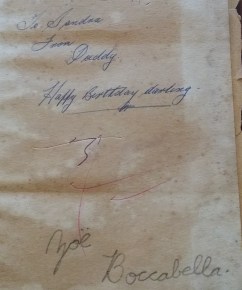 To Sandra
From
Daddy.
Happy Birthday darling.
Zoë
Boccabella.